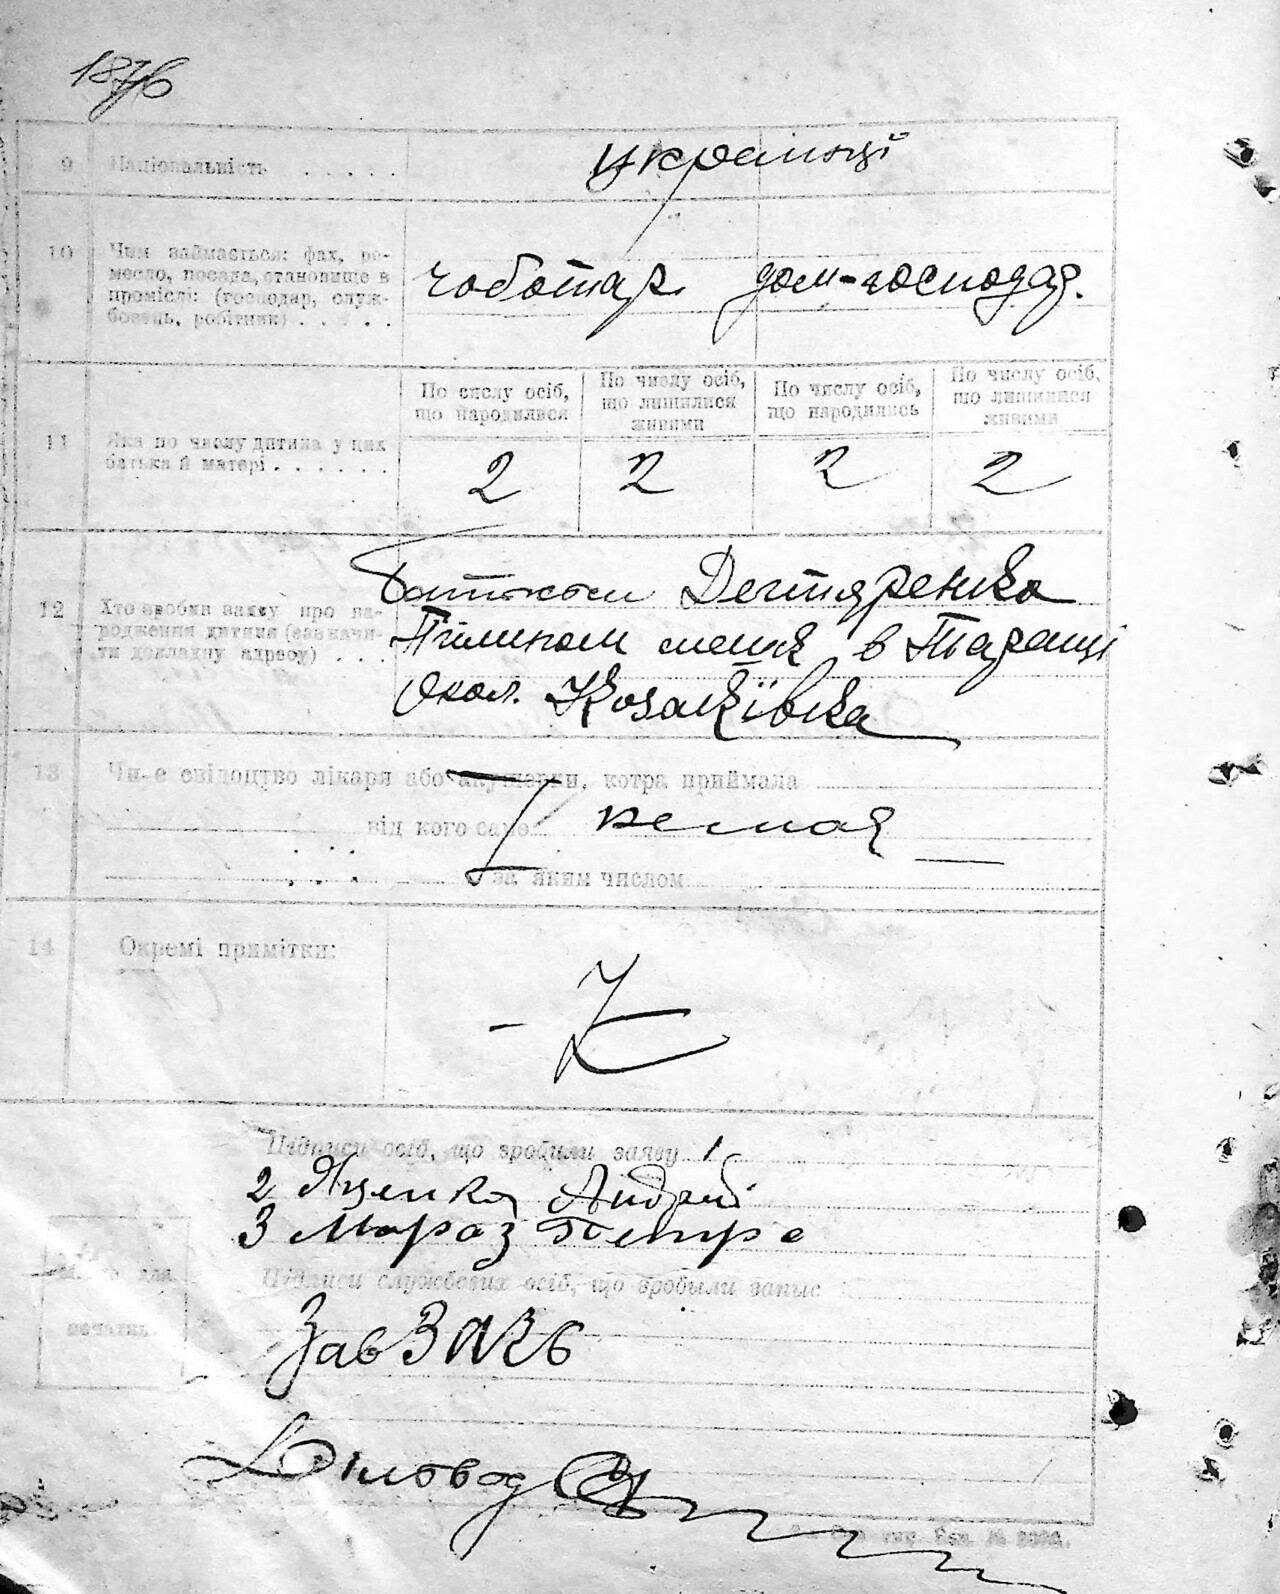 187б
9 Національність . . . . . українці
10 Чим займається: фах, ре-
месло, посада, становище в
проміслі: (господар, служ-
бовець, робітник) . . . . .
чоботар дом-господар.
По числу осіб, що народилися
По числу осіб, що лишилися живими
По числу осіб, що народились
По числу осіб, що лишилися живими
11 Яка по числу дитина у цих
батька й матері . . . . . .
2 2 2 2
12 Хто зробив заяву про на-
родження дитини (зазначи-
ти докладну адресу) . . .
Батьком Дегтяренко
Пилипом меш. в Таращі
окол. Козаківка
13 Чи є свідоцтво лікаря або акушерки, котра приймала
від кого саме
немає
за яким числом
14 Окремі примітки:
Підписи осіб, що зробили заяву 1
2 Яценко Андрій
3 Мороз Петро
Підписи службових осіб, що зробыли запыс
Місце для
печатки.
Зав ЗАГС
Діловод